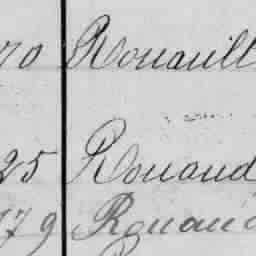 70 Rouault
25 Rouaud
179 Rouaud